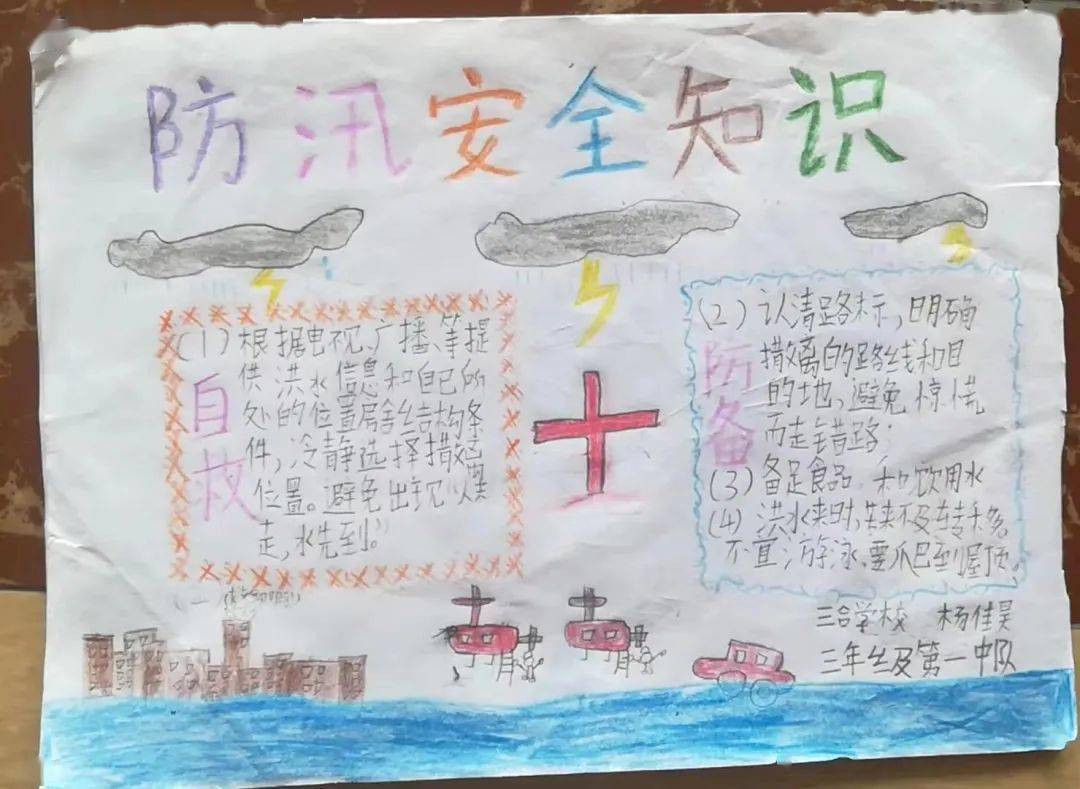 防汛安全知识
自救
(1)根据电视、广播、等提
供洪水信息和自己所
处的位置房舍结构条
件,冷静选择撤离
位置。避免出现"人未
走,水先到。"
防备
(2)认清路标,明确
撤离的路线和目
的地,避免惊慌
而走错路;
(3)备足食品 和饮用水
(4)洪水来时,来不及转移
不宜游泳、要爬到屋顶。
三合学校 杨佳昊
三年级第一中队